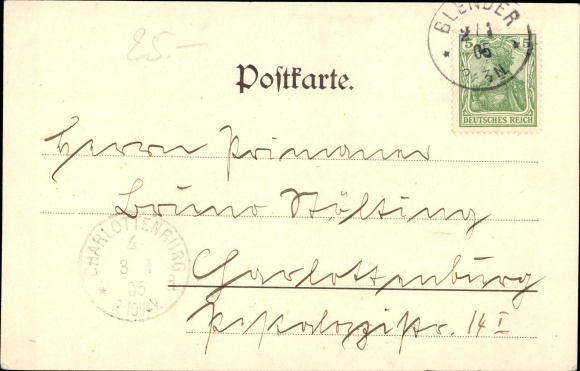 25.-
BLENDER
2/1
05
2-3N.
5 5
DEUTSCHES REICH
Postkarte.
Herrn Primaner
Bruno Stölting
Charlottenburg
Pestalozzistr. 14 I
CHARLOTTENBURG
4
3 1
05